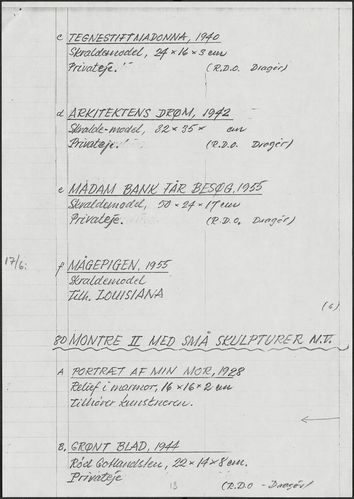 c TEGNESTIFTMADONNA, 1940
Skraldemodel, 24×16×3 cm
Privateje.! (R.D.O. Dragör)
d ARKITEKTENS DRØM, 1942
Skralde-model, 82×35× cm
Privateje.! (R.D.O. Dragör)
e MADAM BANK FÅR BESØG, 1955
Skraldemodel, 50×24×17 cm
Privateje. (R.D.O. Dragör)
17/6.
f MÅGEPIGEN, 1955
Skraldemodel
Tilh. LOUISIANA
(6)
80 MONTRE II MED SMÅ SKULPTURER N.T.
A PORTRÆT AF MIN MOR, 1928
Relief i marmor, 16×16×2 cm
tilhører kunstneren.
B. GRØNT BLAD, 1944
Röd Gotlandsten, 22×14×8 cm.
Privateje (R.D.O - Dragör)
13